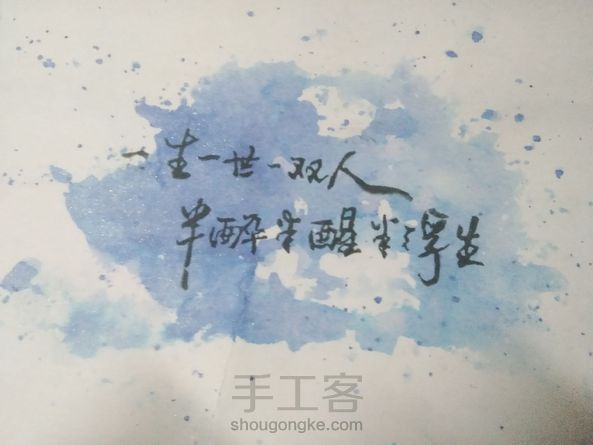 一生一世一双人
半醉半醒半浮生
手工客
shougongke.com